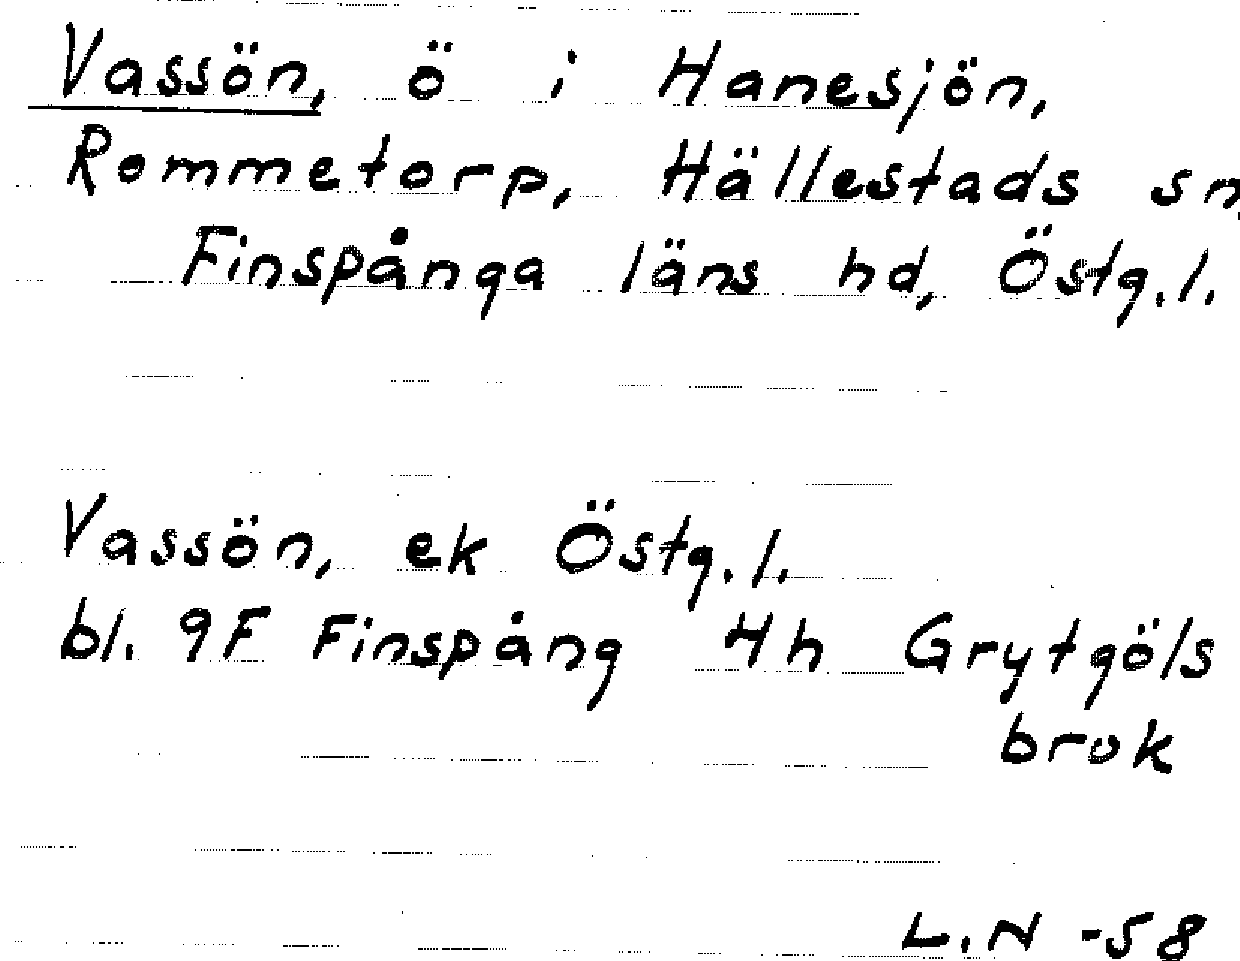 Vassön, ö i Hanesjön,
Rommetorp, Hällestads sn,
Finspånga läns hd, Östg.l.
Vassön, ek Östg.l.
bl. 9F Finspång 4h Grytgöls
bruk
L.N -58